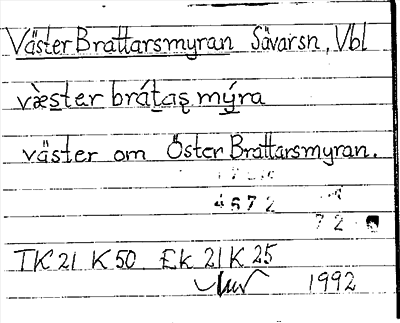 VästerBrattarsmyran Sävarsn, Vbl
vὲster brátas̨ mýra
väster om ÖsterBrattarsmyran.
4672
72
TK 21 K 50 Ek 21 K 25
1992